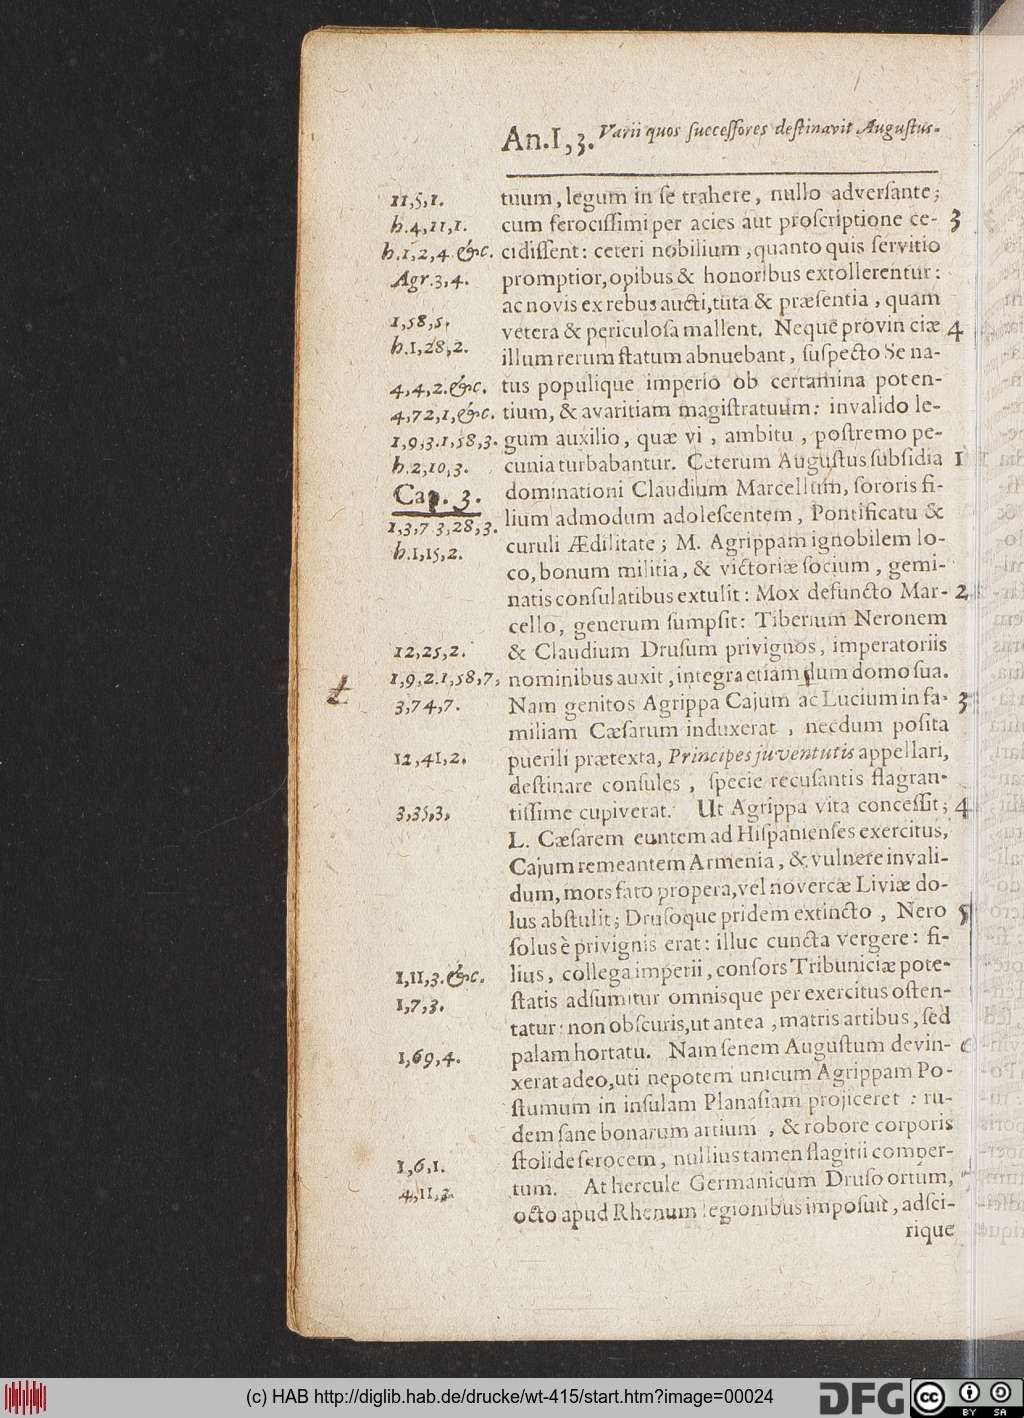 An.I,3. Varii quos ſucceſſores deſtinavit Auguſtus.
11,5,1. tuum, legum in ſe trahere, nullo adverſante;
h.4,11,1. cum ferociſſimi per acies aut proſcriptione ce- 3
h.1,2,4 &c. cidiſſent: ceteri nobilium, quanto quis ſervitio
Agr.3,4. promptior, opibus & honoribus extollerentur:
ac novis ex rebus aucti, tuta & præſentia, quam
1,58,5. vetera & periculoſa mallent. Neque provin ciæ 4
h.1,28,2. illum rerum ſtatum abnuebant, ſuſpecto Se na-
4,4,2.&c. tus populique imperio ob certamina poten-
4,72,1,&c. tium, & avaritiam magiſtratuum: invalido le-
1,9,3.1,58,3. gum auxilio, quæ vi, ambitu, poſtremo pe-
h.2,10,3. cunia turbabantur. Ceterum Auguſtus ſubſidia 1
Cap. 3. dominationi Claudium Marcellum, ſororis fi-
1,3,7 3,28,3. lium admodum adoleſcentem, Pontificatu &
h.1,15,2. curuli Ædilitate; M. Agrippam ignobilem lo-
co, bonum militia, & victoriæ ſocium, gemi-
natis conſulatibus extulit: Mox defuncto Mar- 2
cello, generum ſumpſit: Tiberium Neronem
12,25,2. & Claudium Druſum privignos, imperatoriis
1,9,2.1,58,7, nominibus auxit, integra etiam dum domo ſua.
3,74,7. Nam genitos Agrippa Cajum ac Lucium in fa- 3
miliam Cæſarum induxerat, necdum poſita
12,41,2. puerili prætexta, Principes juventutis appellari,
deſtinare conſules, ſpecie recuſantis flagran-
3,35,3, tiſſime cupiverat. Ut Agrippa vita conceſſit; 4
L. Cæſarem euntem ad Hiſpanienſes exercitus,
Cajum remeantem Armenia, & vulnere invali-
dum, mors fato propera, vel novercæ Liviæ do-
lus abſtulit; Druſoque pridem extincto, Nero 5
ſolus è privignis erat: illuc cuncta vergere: fi-
1,11,3.&c. lius, collega imperii, conſors Tribuniciæ pote-
1,7,3. ſtatis adſumitur omnisque per exercitus oſten-
tatur: non obſcuris, ut antea, matris artibus, ſed
1,69,4. palam hortatu. Nam ſenem Auguſtum devin- 6
xerat adeo, uti nepotem unicum Agrippam Po-
ſtumum in inſulam Planaſiam projiceret: ru-
dem ſane bonarum artium, & robore corporis
1,6,1. ſtolide ferocem, nullius tamen flagitii comper-
4,11,3. tum. At hercule Germanicum Druſo ortum,
octo apud Rhenum legionibus impoſuit, adſci-
rique
(c) HAB http://diglib.hab.de/drucke/wt-415/start.htm?image=00024
DFG
cc BY SA